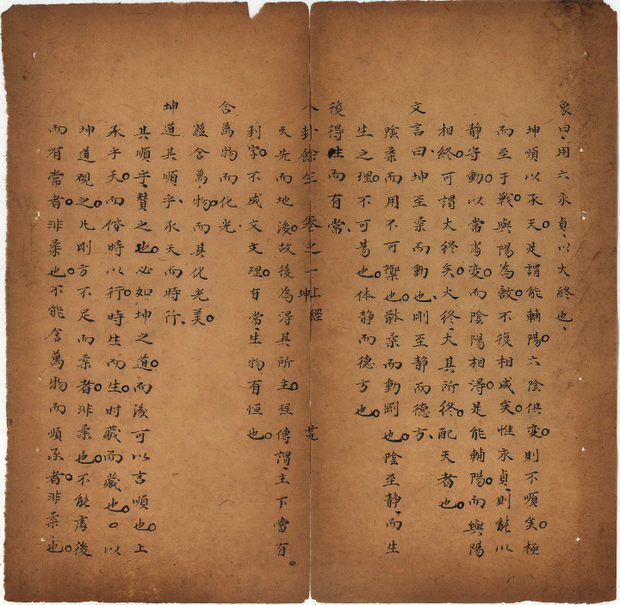 象曰用六永貞以大終也
坤順以承天是謂能輔陽六陰俱變則不順矣極
而至于戰與陽為敵不復相成矣惟永貞則能以
靜守動以常處變而陰陽相得是能輔陽而與陽
相終可謂大終矣大終大其所終配天者也
文言曰坤至柔而動也剛至靜而德方
陰柔而用不可禦也散柔而動剛也陰至靜而生
生之理不可易也体靜而德方也
後得主而有常
八卦餘生 卷之一 上經 坤
天先而地後故後為得其所主程傳謂主下當有
利字不成文文理有常生物有恒也
含萬物而化光
涵含萬物而其化光美
坤道其順乎承天而時行
其順乎贊之也必如坤之道而後可以言順也上
承乎天而偕時以行時生而生时藏而藏也以
坤道硯之凡剛方不足而柔者非柔也不能處後
而有常者非柔也不能含萬物而順承者非柔也